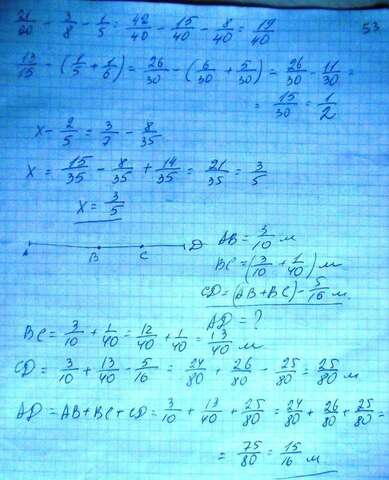 21/20 - 3/8 - 1/5 = 42/40 - 15/40 - 8/40 = 19/40
53
13/15 - (1/5 + 1/6) = 26/30 - (6/30 + 5/30) = 26/30 - 11/30 =
= 15/30 = 1/2
x - 2/5 = 3/7 - 8/35
x = 15/35 - 8/35 + 14/35 = 21/35 = 3/5
x = 3/5
A B C D
AB = 3/10 м
BC = (3/10 + 1/40) м
CD = (AB + BC) - 5/16 м
AD = ?
BC = 3/10 + 1/40 = 12/40 + 1/40 = 13/40 м
CD = 3/10 + 13/40 - 5/16 = 24/80 + 26/80 - 25/80 = 25/80 м
AD = AB + BC + CD = 3/10 + 13/40 + 25/80 = 24/80 + 26/80 + 25/80 =
= 75/80 = 15/16 м